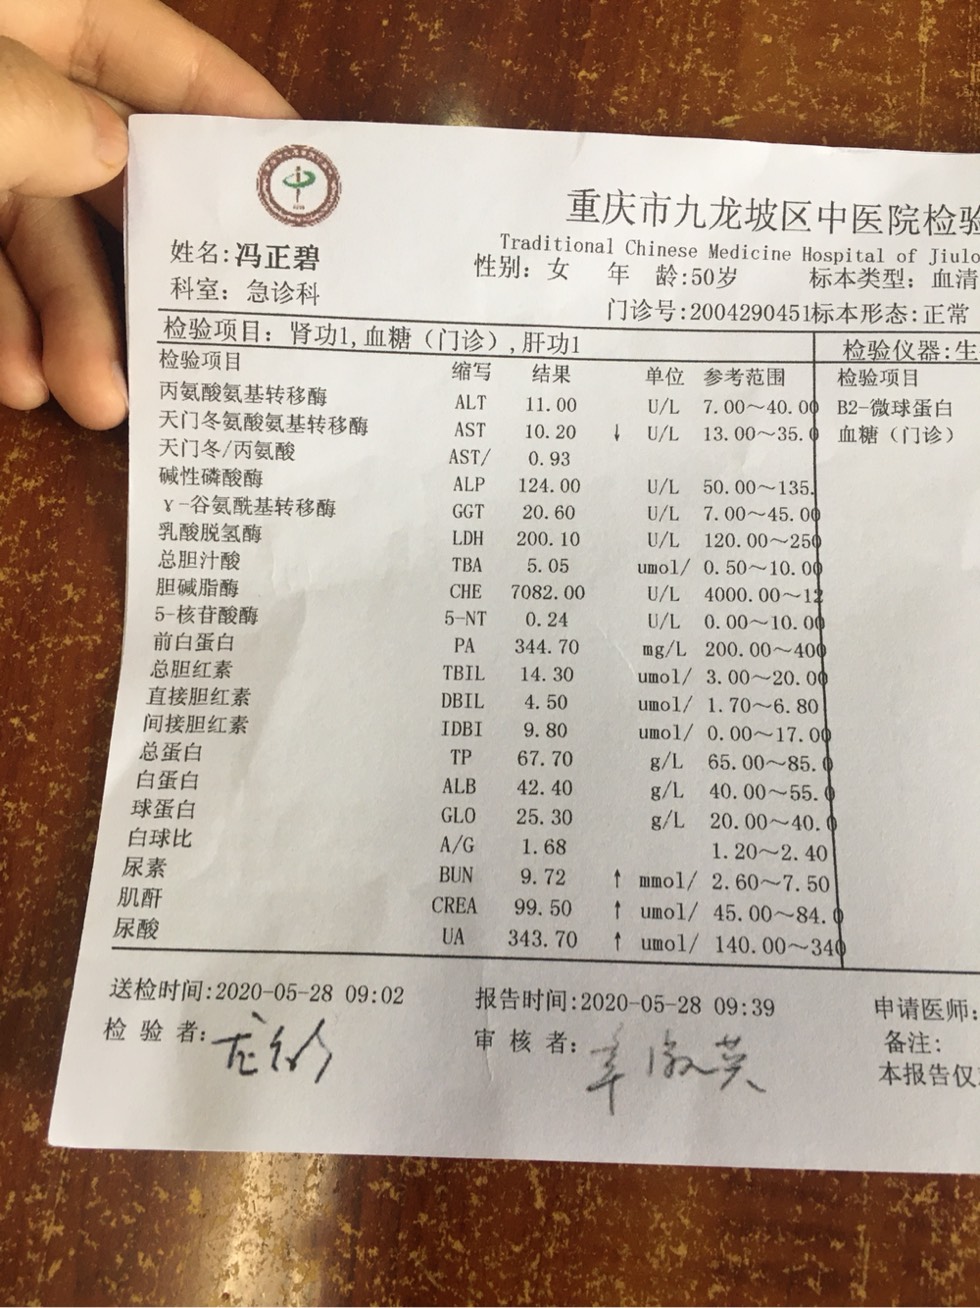 重庆市九龙坡区中医院检验
Traditional Chinese Medicine Hospital of Jiulo
姓名:冯正碧 性别: 女 年 龄:50岁 标本类型: 血清
科室: 急诊科 门诊号:2004290451标本形态:正常
检验项目: 肾功1,血糖（门诊）,肝功1 检验仪器:生
检验项目 缩写 结果 单位 参考范围 检验项目
丙氨酸氨基转移酶 ALT 11.00 U/L 7.00～40.00 B2-微球蛋白
天门冬氨酸氨基转移酶 AST 10.20 ↓ U/L 13.00～35.0 血糖（门诊）
天门冬/丙氨酸 AST/ 0.93
碱性磷酸酶 ALP 124.00 U/L 50.00～135.
γ-谷氨酰基转移酶 GGT 20.60 U/L 7.00～45.00
乳酸脱氢酶 LDH 200.10 U/L 120.00～250
总胆汁酸 TBA 5.05 umol/ 0.50～10.00
胆碱脂酶 CHE 7082.00 U/L 4000.00～12
5-核苷酸酶 5-NT 0.24 U/L 0.00～10.00
前白蛋白 PA 344.70 mg/L 200.00～400
总胆红素 TBIL 14.30 umol/ 3.00～20.00
直接胆红素 DBIL 4.50 umol/ 1.70～6.80
间接胆红素 IDBI 9.80 umol/ 0.00～17.00
总蛋白 TP 67.70 g/L 65.00～85.0
白蛋白 ALB 42.40 g/L 40.00～55.0
球蛋白 GLO 25.30 g/L 20.00～40.0
白球比 A/G 1.68 1.20～2.40
尿素 BUN 9.72 ↑ mmol/ 2.60～7.50
肌酐 CREA 99.50 ↑ umol/ 45.00～84.0
尿酸 UA 343.70 ↑ umol/ 140.00～340
送检时间:2020-05-28 09:02 报告时间:2020-05-28 09:39 申请医师:
检 验 者: 审 核 者: 备注:
本报告仅